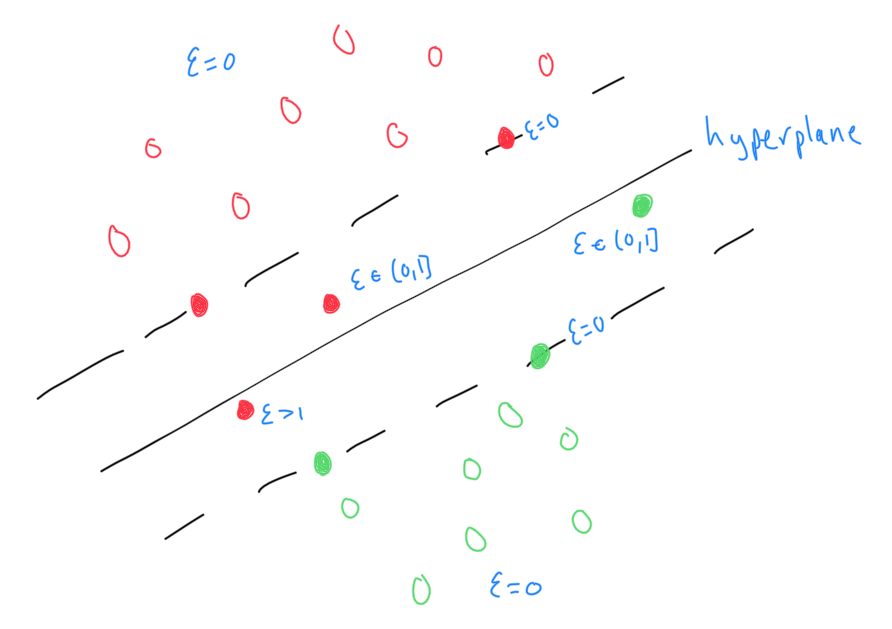 ξ=0
ξ=0
hyperplane
ξ∈(0,1]
ξ∈(0,1]
ξ=0
ξ>1
ξ=0